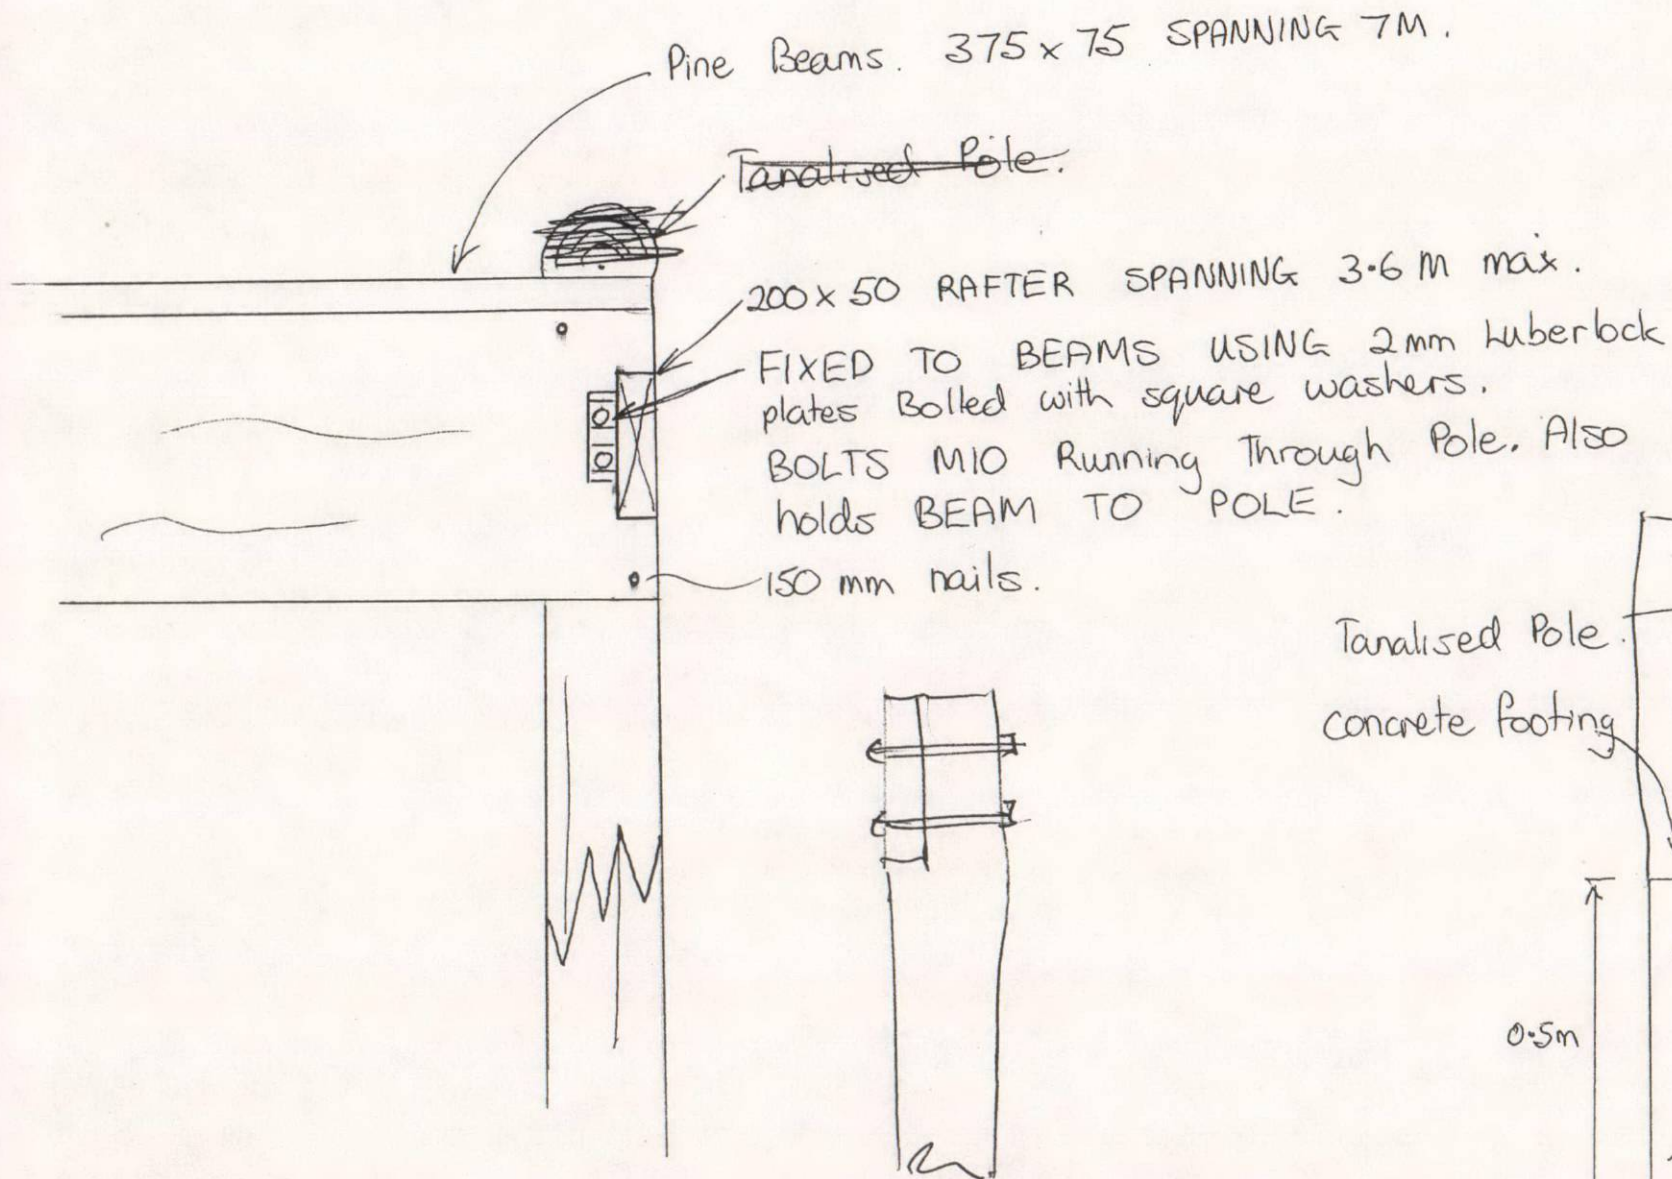 Pine Beams. 375 x 75 SPANNING 7M.
Tanalised Pole.
200 x 50 RAFTER SPANNING 3.6 M max.
FIXED TO BEAMS USING 2mm Luberlock
plates Bolted with square washers.
BOLTS M10 Running Through Pole. Also
holds BEAM TO POLE.
150 mm nails.
Tanalised Pole.
concrete footing
0.5m